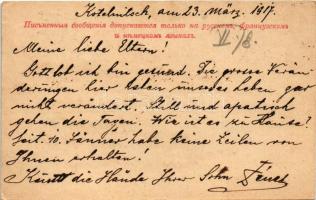 Kotelnitsch, am 23. März. 1917.
Письменныя сообщенія допускаются только на русскомъ, французскомъ
и нѣмецкомъ языкахъ.
Meine liebe Eltern!
Gottlob ich bin gesund. Die grosse Verän-
derungen hier haben unseres Leben gar
nicht verändert. Still und apatisch
gehen die Tagen. Wie ist es zu Hause?
Seit 10. Jänner habe keine Zeilen von
Ihnen erhalten!
Küsst die Hände Ihrer Sohn